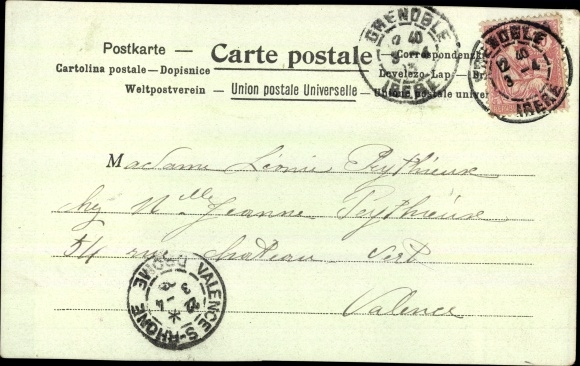 Postkarte — Carte postale — Correspondenzk
Cartolina postale — Dopisnice Levelezo-Lap — Br
Weltpostverein — Union postale Universelle — Unione postale univer
GRENOBLE
ISERE
GRENOBLE
12 40
3 -4
ISERE
Madame Léonie Peythieux
chez Mlle Jeanne Peythieux
54 rue chateau vert
Valence
VALENCE-S-RHONE
DROME